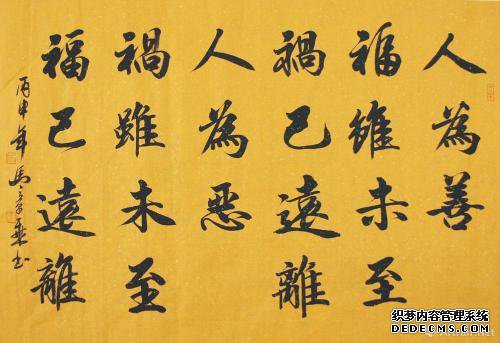 人為善
福雖未至
禍已遠離
人為惡
禍雖未至
福已遠離
丙申年馬
织梦内容管理系统
DEDECMS.COM